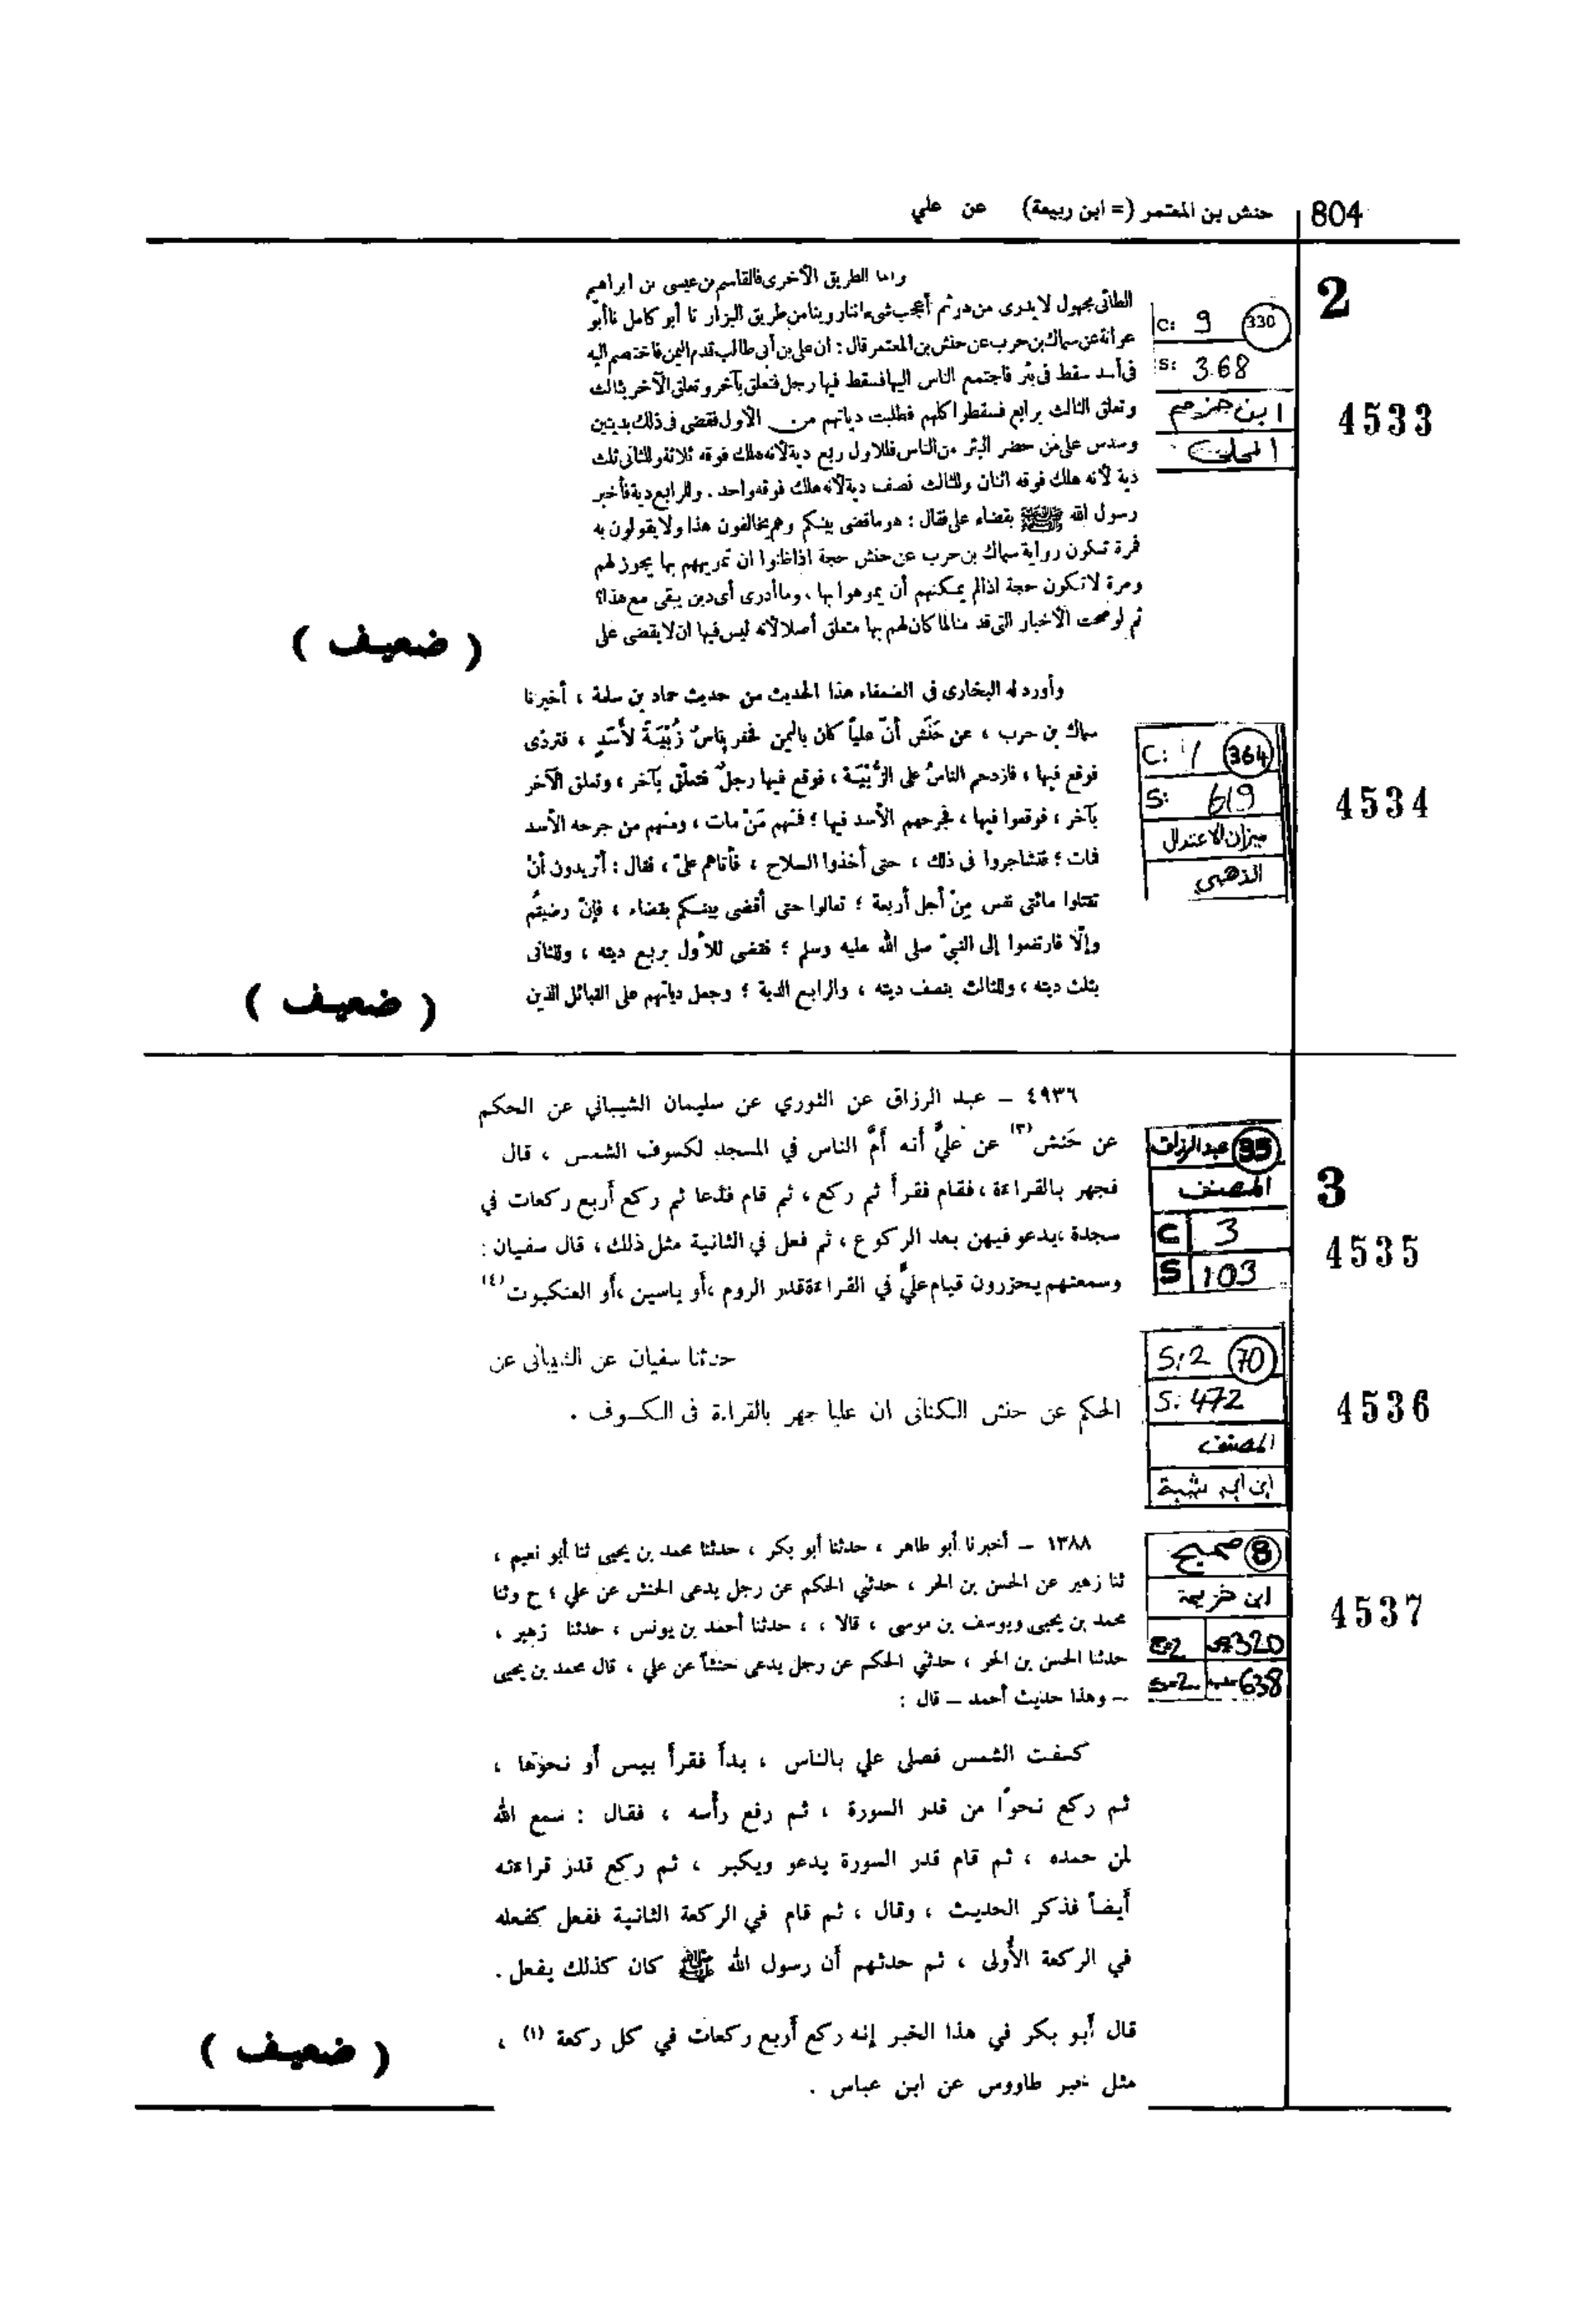 804 حنش بن المعتمر (= ابن ربيعة) عن علي
2
واما الطريق الأخرى فالقاسم بن عيسى بن ابراهيم
الطائى مجهول لا يدرى من هو ثم أعجب شىء اننا روينا من طريق البزار نا أبو كامل نا أبو
عوانة عن سماك بن حرب عن حنش بن المعتمر قال : ان على بن أبى طالب قدم اليمن فاختصم اليه
فى أسد سقط فى بئر فاجتمع الناس اليها فسقط فيها رجل فتعلق بآخر وتعلق الآخر بثالث
وتعلق الثالث برابع فسقطوا كلهم فطلبت دياتهم من الأول فقضى فى ذلك بديتين
وسدس على من حضر البئر من الناس فللاول ربع دية لأنه هلك فوقه ثلاثة وللثانى ثلث
دية لأنه هلك فوقه اثنان وللثالث نصف دية لأنه هلك فوقه واحد . وللرابع دية فأخبر
رسول الله ﷺ بقضاء على فقال : هو ما قضى بينكم وهم يخالفون هذا ولا يقولون به
فمرة تكون رواية سماك بن حرب عن حنش حجة اذا ظنوا ان تمويههم بها يجوز لهم
ومرة لا تكون حجة اذا لم يمكنهم أن يموهوا بها ، وما أدرى أى دين يبقى مع هذا ؟
ثم لو صحت الأخبار التى قدمنا لما كان لهم بها متعلق أصلا لأنه ليس فيها ان لا يقضى على
( ضعيف )
C: 9 330
S: 368
ابن حزم
المحلى
4533
وأورد له البخارى فى الضعفاء هذا الحديث من حديث حماد بن سلمة ، أخبرنا
سماك بن حرب ، عن حَنَش أنّ علياً كان باليمن فحفر ناسٌ زُبْيَةً لأَسَدٍ ، فتردّى
فوقع فيها ، فازدحم الناسُ على الزُّبْيَة ، فوقع فيها رجلٌ فتعلّق بآخر ، وتعلق الآخر
بآخر ، فوقعوا فيها ، فجرحهم الأسد فيها ؛ فمنهم مَنْ مات ، ومنهم من جرحه الأسد
فمات ؛ فتشاجروا فى ذلك ، حتى أخذوا السلاح ، فأتاهم علىّ ، فقال : أتريدون أنْ
تقتلوا مائتى نفس مِنْ أجل أربعة ؛ تعالوا حتى أقضى بينكم بقضاء ، فإنْ رضيتُم
وإلّا فارتفعوا إلى النبىّ صلى الله عليه وسلم ؛ فقضى للأول بربع ديته ، وللثانى
بثلث ديته ، وللثالث بنصف ديته ، والرابع الدية ؛ وجعل دياتهم على القبائل الذين
( ضعيف )
C: 1 364
S: 619
ميزان الاعتدال
الذهبي
4534
3
٤٩٣٦ – عبد الرزاق عن الثوري عن سليمان الشيباني عن الحكم
عن حَنش (٣) عن عليٍّ أنه أَمَّ الناس في المسجد لكسوف الشمس ، قال
فجهر بالقراءة ، فقام فقرأ ثم ركع ، ثم قام فدعا ثم ركع أربع ركعات في
سجدة ، يدعو فيهن بعد الركوع ، ثم فعل في الثانية مثل ذلك ، قال سفيان :
وسمعتهم يحزرون قيام عليٍّ في القراءة قدر الروم ، أو ياسين ، أو العنكبوت (٤)
95 عبدالرزاق
المصنف
C 3
S 103
4535
حدثنا سفيان عن الشيبانى عن
الحكم عن حنش الكنانى ان عليا جهر بالقراءة فى الكسوف .
S:2 70
S: 472
المصنف
ابن ابي شيبة
4536
١٣٨٨ – أخبرنا أبو طاهر ، حدثنا أبو بكر ، حدثنا محمد بن يحيى ثنا أبو نعيم ،
ثنا زهير عن الحسن بن الحر ، حدثني الحكم عن رجل يدعى الحنش عن علي ؛ ح وثنا
محمد بن يحيى ويوسف بن موسى ، قالا ، ، حدثنا أحمد بن يونس ، حدثنا زهير ،
حدثنا الحسن بن الحر ، حدثني الحكم عن رجل يدعى حنشاً عن علي ، قال محمد بن يحيى
– وهذا حديث أحمد – قال :
كسفت الشمس فصلى علي بالناس ، بدأ فقرأ بيس أو نحوها ،
ثم ركع نحوًا من قدر السورة ، ثم رفع رأسه ، فقال : سمع الله
لمن حمده ، ثم قام قدر السورة يدعو ويكبر ، ثم ركع قدر قراءته
أيضاً فذكر الحديث ، وقال ، ثم قام في الركعة الثانية ففعل كفعله
في الركعة الأولى ، ثم حدثهم أن رسول الله ﷺ كان كذلك يفعل .
قال أبو بكر في هذا الخبر إنه ركع أربع ركعات في كل ركعة (١) ،
مثل خبر طاووس عن ابن عباس .
( ضعيف )
8 صحيح
ابن خزيمة
320
638
4537